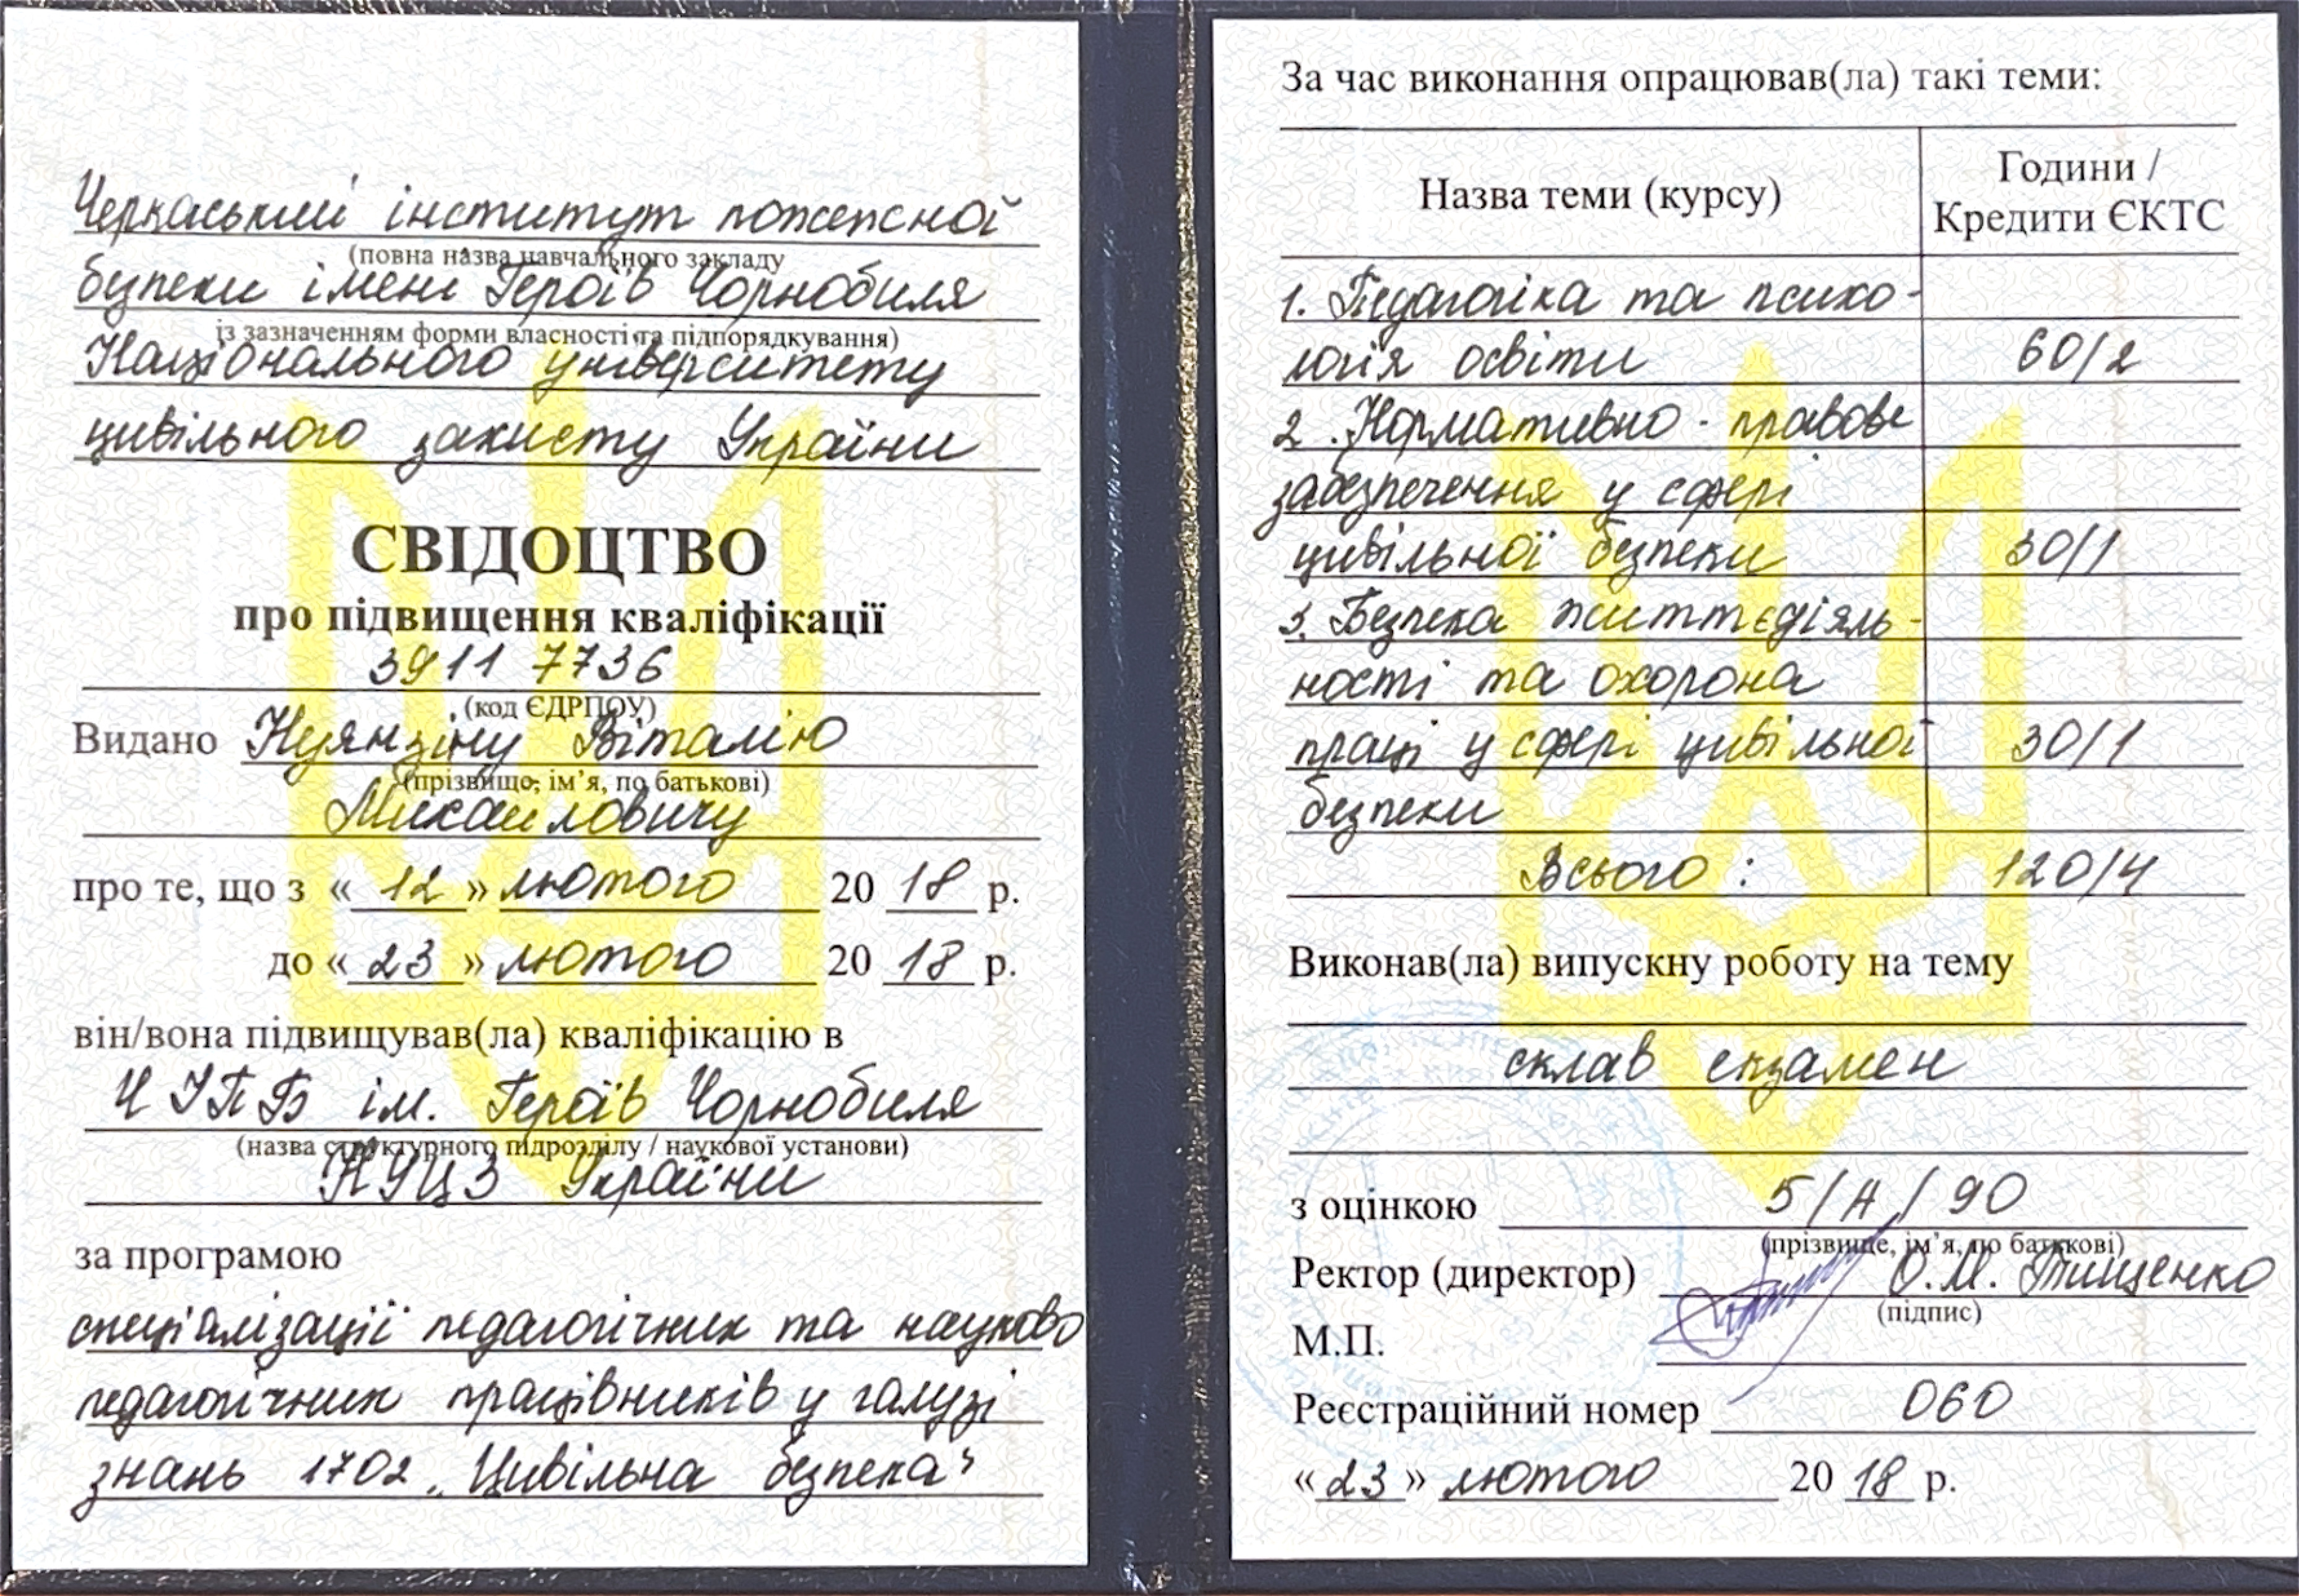 Черкаський інститут пожежної
(повна назва навчального закладу
безпеки імені Героїв Чорнобиля
із зазначенням форми власності та підпорядкування)
Національного університету
цивільного захисту України
СВІДОЦТВО
про підвищення кваліфікації
3911 7736
(код ЄДРПОУ)
Видано Нуянзіну Віталію
(прізвище, ім’я, по батькові)
Михайловичу
про те, що з « 12 » лютого 20 18 р.
до « 23 » лютого 20 18 р.
він/вона підвищував(ла) кваліфікацію в
ЧІПБ ім. Героїв Чорнобиля
(назва структурного підрозділу / наукової установи)
НУЦЗ України
за програмою
спеціалізації педагогічних та науково
педагогічних працівників у галузі
знань 1702 „Цивільна безпека“
За час виконання опрацював(ла) такі теми:
Назва теми (курсу) Години / Кредити ЄКТС
1. Педагогіка та психо-
логія освіти 60/2
2. Нормативно - правове
забезпечення у сфері
цивільної безпеки 30/1
3. Безпека життєдіяль-
ності та охорона
праці у сфері цивільної 30/1
безпеки
Всього : 120/4
Виконав(ла) випускну роботу на тему
склав екзамен
з оцінкою 5/А/90
(прізвище, ім’я, по батькові)
Ректор (директор) О.М. Тищенко
(підпис)
М.П.
Реєстраційний номер 060
« 23 » лютого 20 18 р.